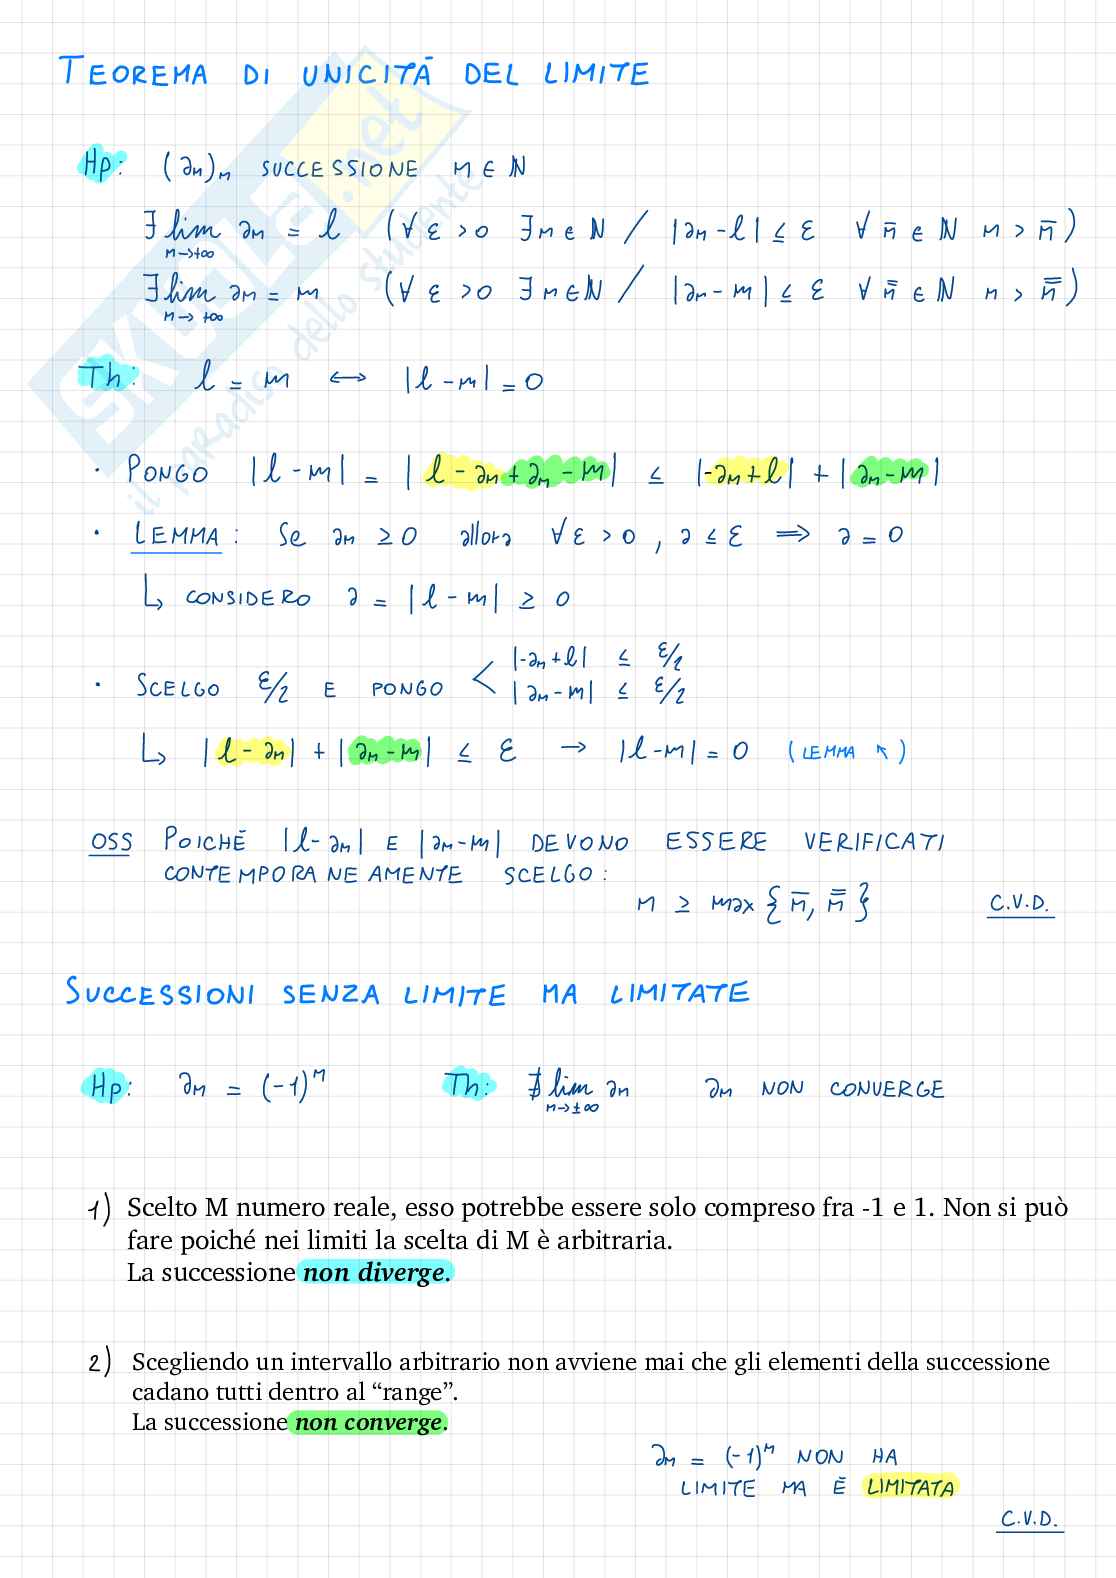 TEOREMA DI UNICITÀ DEL LIMITE
Hp: (an)n SUCCESSIONE n ∈ ℕ
∃ lim an = l (∀ ε > 0 ∃ n ∈ ℕ / |an - l| ≤ ε ∀ n̅ ∈ ℕ n > n̅)
n→+∞
∃ lim an = m (∀ ε > 0 ∃ n ∈ ℕ / |an - m| ≤ ε ∀ n̿ ∈ ℕ n > n̿)
n→+∞
Th: l = m ↔ |l - m| = 0
· PONGO |l - m| = |l - an + an - m| ≤ |-an + l| + |an - m|
· LEMMA: Se an ≥ 0 allora ∀ ε > 0, a ≤ ε ⟹ a = 0
↳ CONSIDERO a = |l - m| ≥ 0
|-an + l| ≤ ε/2
· SCELGO ε/2 E PONGO <
|an - m| ≤ ε/2
↳ |l - an| + |an - m| ≤ ε → |l - m| = 0 (LEMMA ↖)
OSS POICHÉ |l - an| E |an - m| DEVONO ESSERE VERIFICATI
CONTEMPORANEAMENTE SCELGO:
n ≥ max {n̅, n̿}
C.V.D.
SUCCESSIONI SENZA LIMITE MA LIMITATE
Hp: an = (-1)^n Th: ∄ lim an an NON CONVERGE
n→±∞
1) Scelto M numero reale, esso potrebbe essere solo compreso fra -1 e 1. Non si può
fare poiché nei limiti la scelta di M è arbitraria.
La successione non diverge.
2) Scegliendo un intervallo arbitrario non avviene mai che gli elementi della successione
cadano tutti dentro al “range”.
La successione non converge.
an = (-1)^n NON HA
LIMITE MA È LIMITATA
C.V.D.
SKUOLA.net
il paradiso dello studente